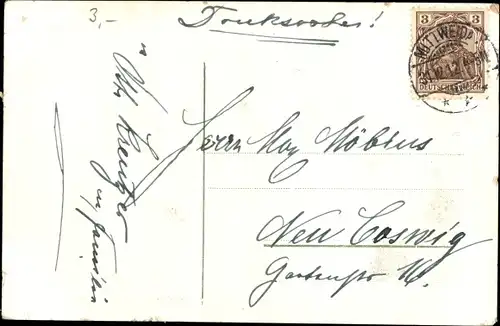 3,-
Drucksache!
3 3
DEUTSCHES REICH
MITTWEIDA
Otto Kreutzer
u. Familie
Herrn Max Möbius
Neu Coswig
Gartenstr